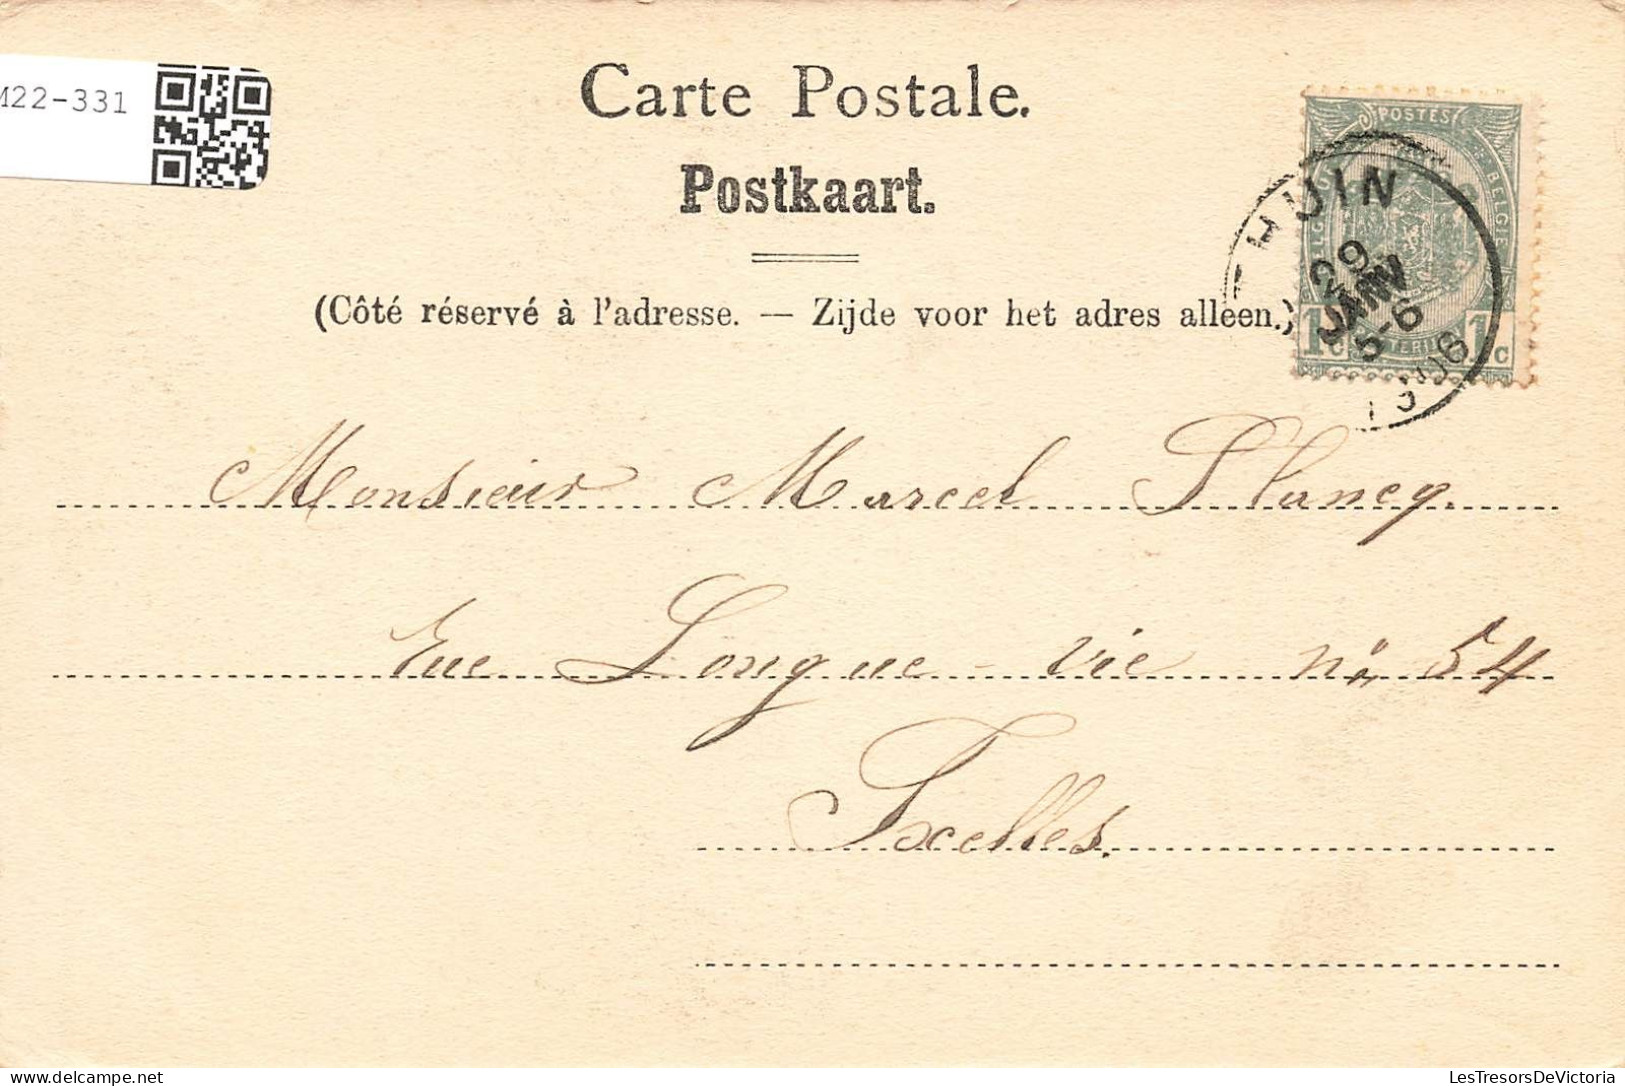 M22-331
Carte Postale.
Postkaart.
(Côté réservé à l'adresse. — Zijde voor het adres alleen.)
POSTES
BELGIE
1c 1c
THUIN
29
JANV
5-6
Monsieur Marcel Plancq.
Rue Longue-vie no 54
Ixelles.
LesTresorsDeVictoria